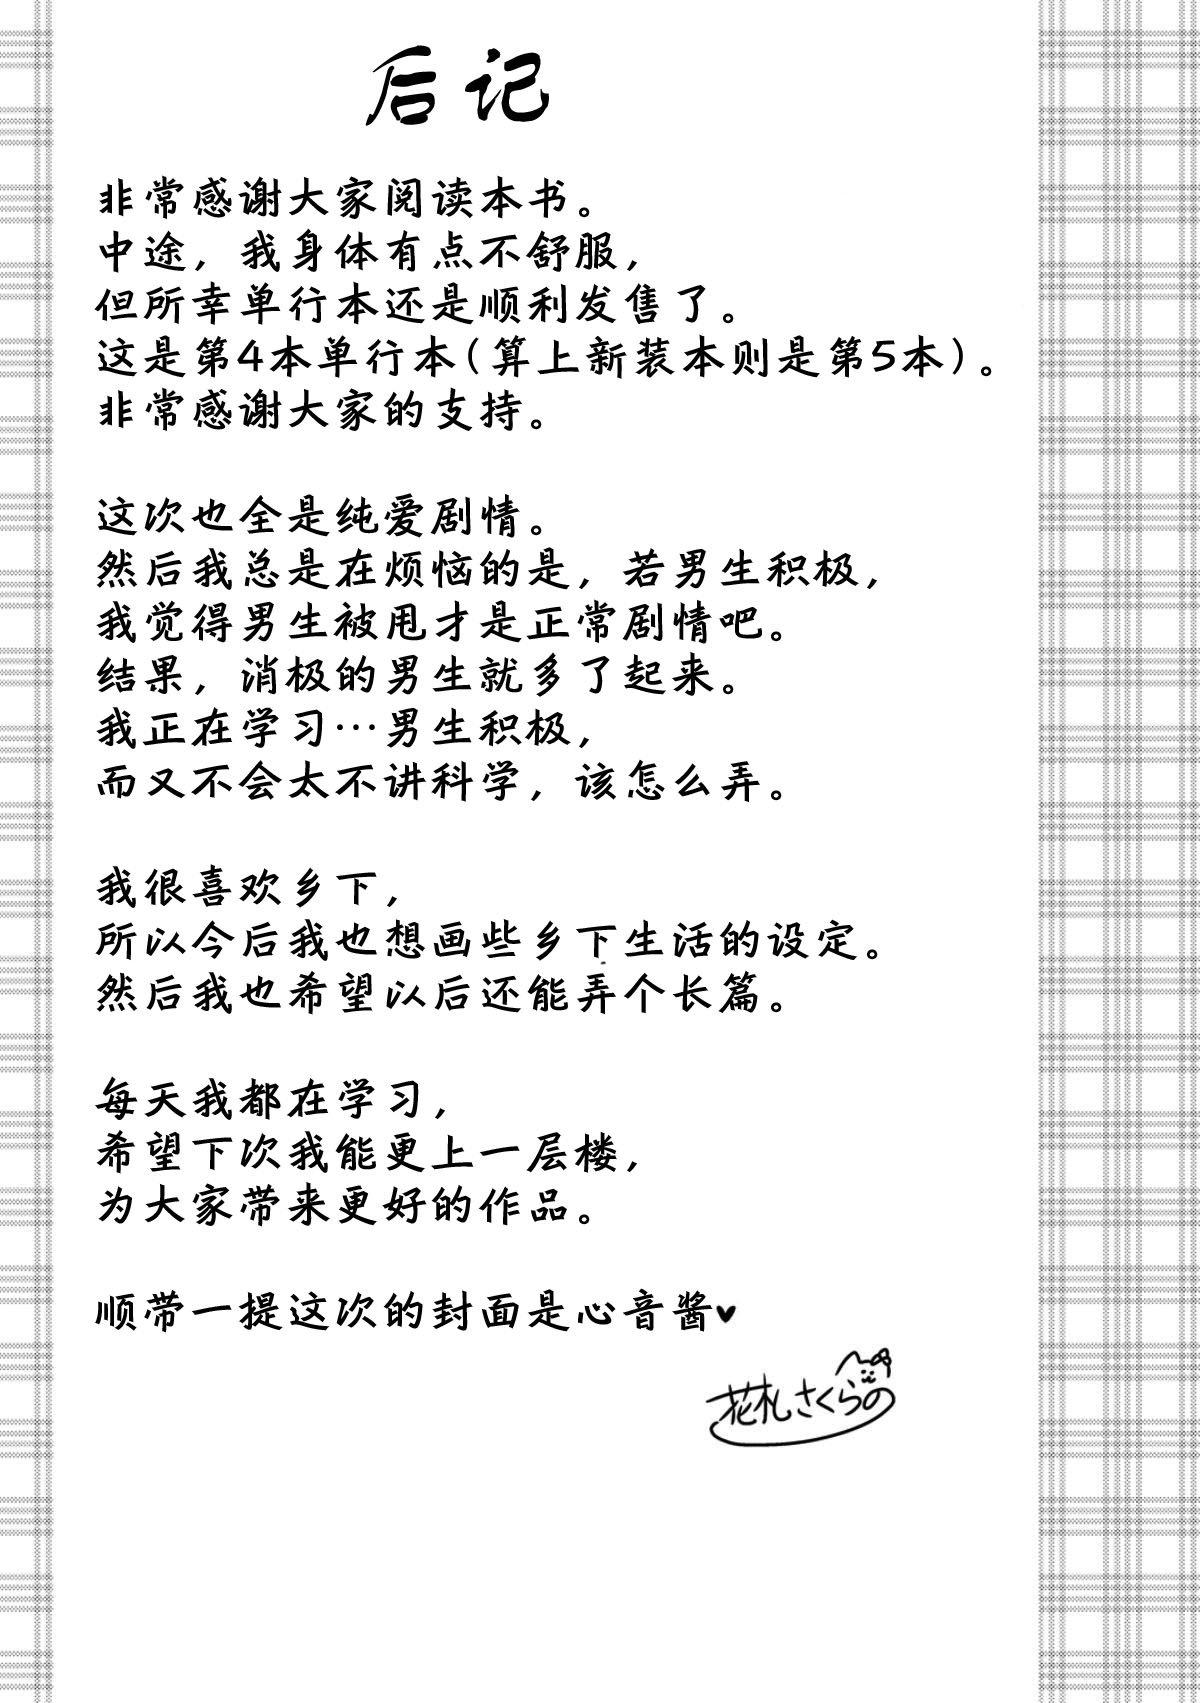 后记
非常感谢大家阅读本书。
中途，我身体有点不舒服，
但所幸单行本还是顺利发售了。
这是第4本单行本(算上新装本则是第5本)。
非常感谢大家的支持。
这次也全是纯爱剧情。
然后我总是在烦恼的是，若男生积极，
我觉得男生被甩才是正常剧情吧。
结果，消极的男生就多了起来。
我正在学习…男生积极，
而又不会太不讲科学，该怎么弄。
我很喜欢乡下，
所以今后我也想画些乡下生活的设定。
然后我也希望以后还能弄个长篇。
每天我都在学习，
希望下次我能更上一层楼，
为大家带来更好的作品。
顺带一提这次的封面是心音酱♥
花札さくらの